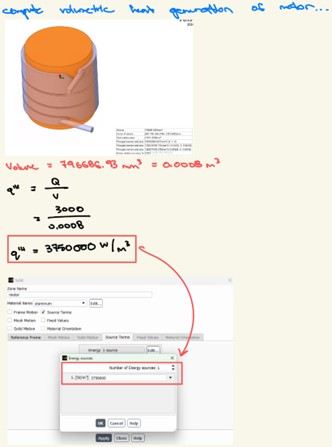 compute volumetric heat generation of motor...
Volume = 796686.93 mm³ = 0.0008 m³
q''' = Q
V
= 3000
0.0008
q''' = 3750000 W/m³
Solid
Zone Name
motor
Material Name aluminum Edit...
Frame Motion Source Terms
Mesh Motion Fixed Values
Solid Motion Material Orientation
Reference Frame Mesh Motion Solid Motion Source Terms Fixed Values Material Orientation
Energy 1 source Edit...
Energy sources
Number of Energy sources 1
1. [W/m³] 3750000
OK Cancel Help
Apply Close Help